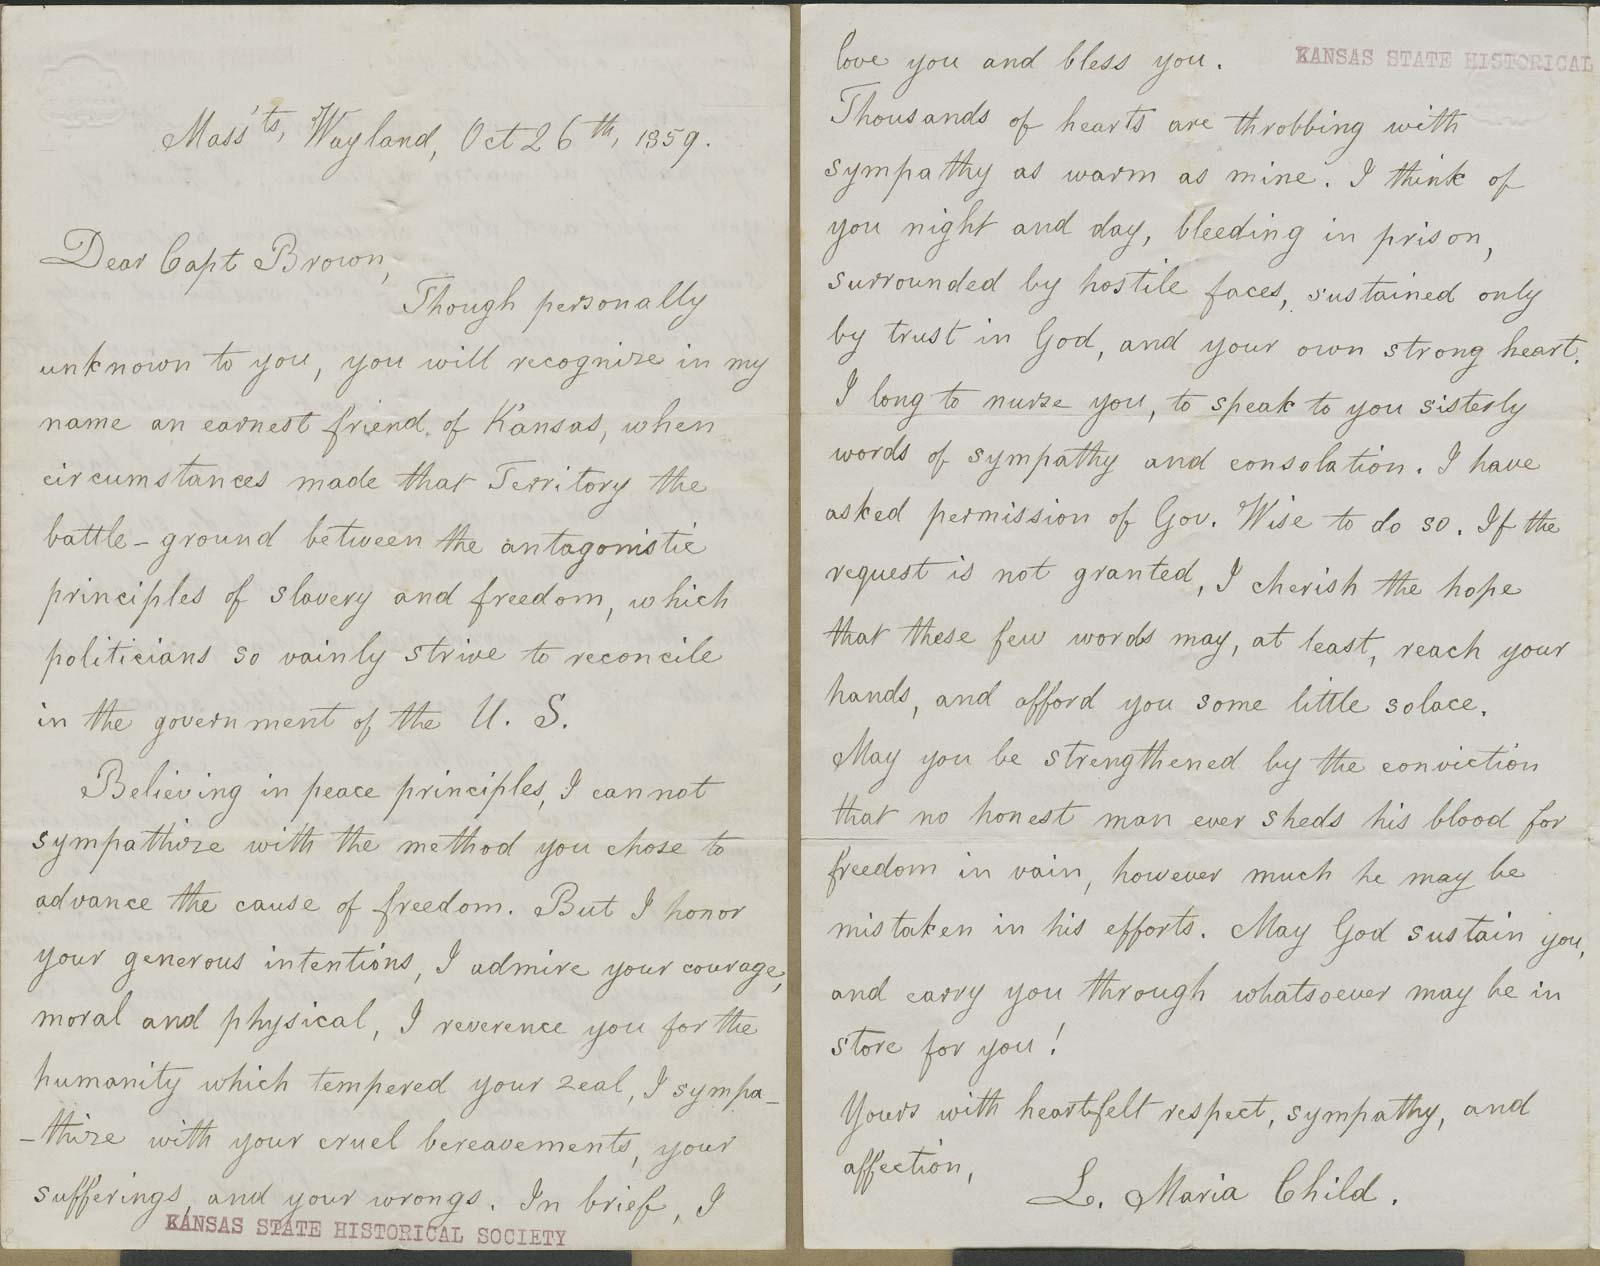 Mass'ts, Wayland, Oct 26th, 1859.
Dear Capt Brown,
Though personally
unknown to you, you will recognize in my
name an earnest friend of Kansas, when
circumstances made that Territory the
battle-ground between the antagonistic
principles of slavery and freedom, which
politicians so vainly strive to reconcile
in the government of the U. S.
Believing in peace principles, I cannot
sympathize with the method you chose to
advance the cause of freedom. But I honor
your generous intentions, I admire your courage,
moral and physical, I reverence you for the
humanity which tempered your zeal, I sympa-
-thize with your cruel bereavements, your
sufferings, and your wrongs. In brief, I
KANSAS STATE HISTORICAL SOCIETY
love you and bless you.
KANSAS STATE HISTORICAL
Thousands of hearts are throbbing with
sympathy as warm as mine. I think of
you night and day, bleeding in prison,
surrounded by hostile faces, sustained only
by trust in God, and your own strong heart.
I long to nurse you, to speak to you sisterly
words of sympathy and consolation. I have
asked permission of Gov. Wise to do so. If the
request is not granted, I cherish the hope
that these few words may, at least, reach your
hands, and afford you some little solace.
May you be strengthened by the conviction
that no honest man ever sheds his blood for
freedom in vain, however much he may be
mistaken in his efforts. May God sustain you,
and carry you through whatsoever may be in
store for you!
Yours with heartfelt respect, sympathy, and
affection,
L. Maria Child.